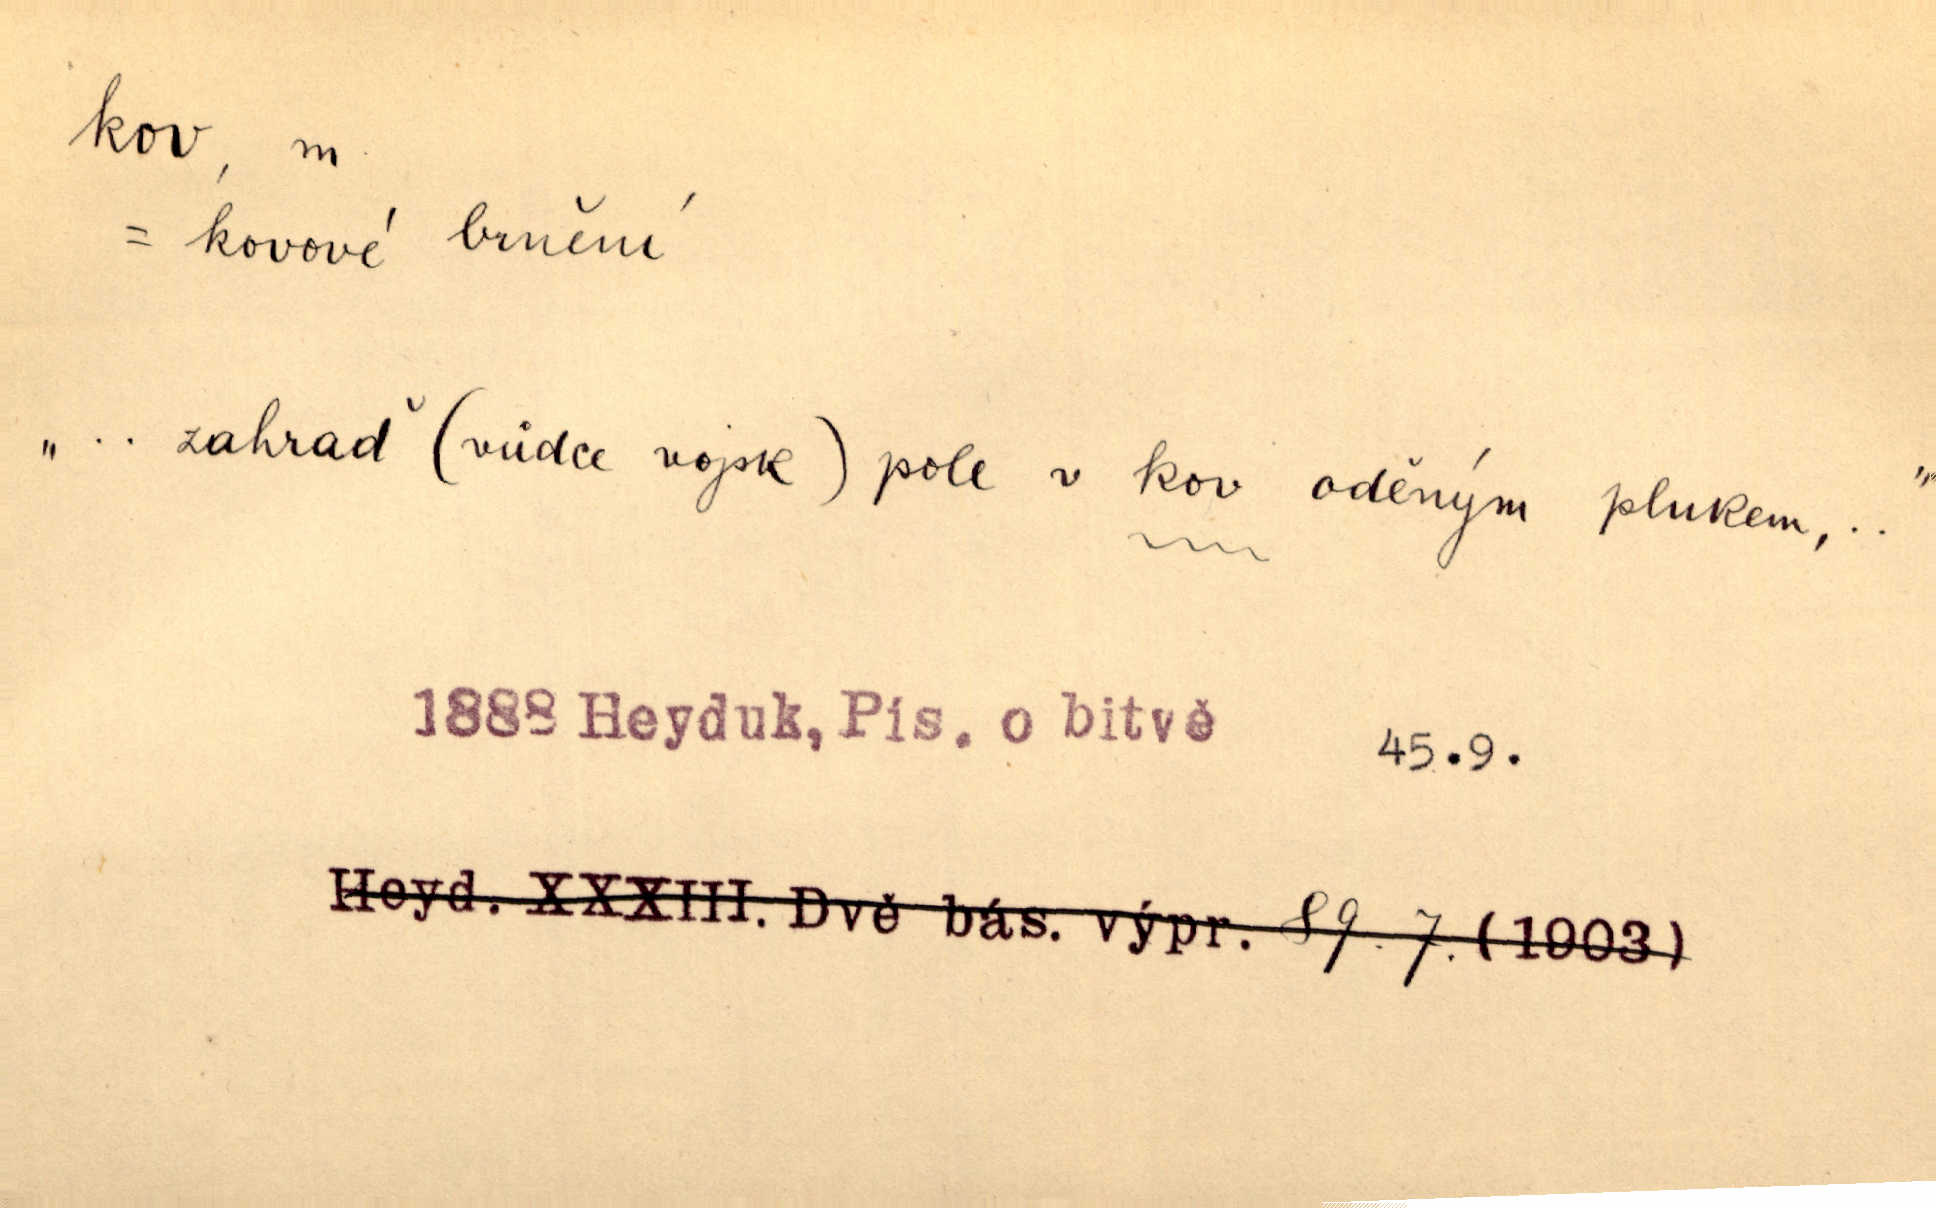 kov, m
= kovové brnění
„ .. zahraď (vůdce vojsk) pole v kov oděným plukem, .. "
1888 Heyduk, Pís. o bitvě 45.9.
Heyd. XXXIII. Dvě bás. výpr. 89. 7. (1903)